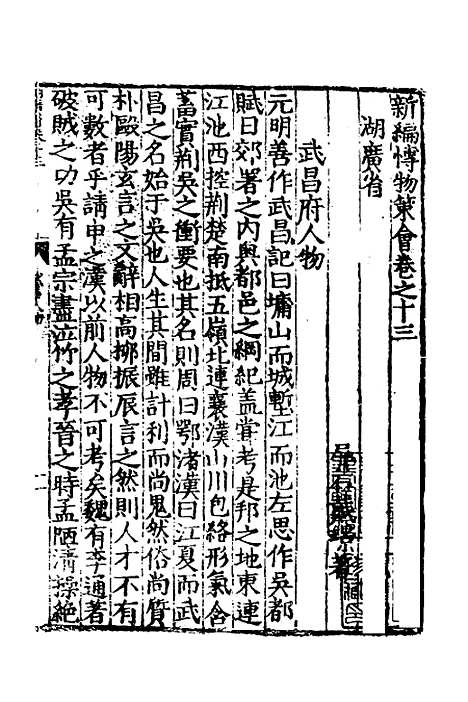 新編博物策會卷之十三
湖廣省
武昌府人物
元明善作武昌記曰墉山而城塹江而池左思作吳都
賦曰郊署之內輿都邑之綱紀盖嘗考是邦之地東連
江池西控荆楚南抵五嶺北連襄漢山川包絡形氣含
畜實荆吳之衝要也其名則周曰鄂渚漢曰江夏而武
昌之名始于吳也人生其間雖計利而尚鬼然俗尚質
朴歐陽玄言之文辭相高柳振辰言之然則人才不有
可數者乎請申之漢以前人物不可考矣魏有李通著
破賊之功吳有孟宗盡泣竹之孝晉之時孟陋清操絶